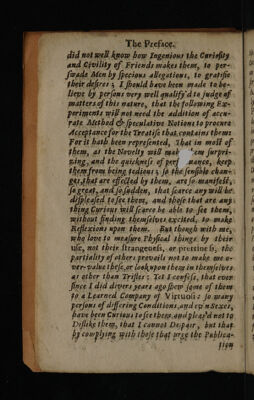 The Preface.
did not well know how Ingenious the Curiosity
and Civility of Friends makes them, to per-
swade Men by specious allegations, to gratifie
their desires; I should have been made to be-
lieve by persons very well qualify'd to judge of
matters of this nature, that the following Ex-
periments will not need the addition of accu-
rate Method & speculative Notions to procure
Acceptance for the Treatise that contains them:
For it hath been represented, That in most of
them, as the Novelty will make em surpri-
zing, and the quickness of per mance, keep
them from being tedious; so the sensible chan-
ges, that are effected by them, are so manifest,
so great, and so sudden, that scarce any will be
displeased to see them, and those that are any
thing Curious will scarce be able to see them,
without finding themselves excited, to make
Reflexions upon them. But though with me,
who love to measure Physical things by their
use, not their strangeness, or prettiness, the
partiality of others prevails not to make me o-
ver-value these, or look upon them in themselves
as other than Trifles: Yet I confess, that ever
since I did divers years ago shew some of them
to a Learned Company of Virtuosi: so many
persons of differing Conditions, and ev'n Sexes,
have been Curious to see them, and pleas'd not to
Dislike them, that I cannot Despair, but that
by complying with those that urge the Publica-
tion